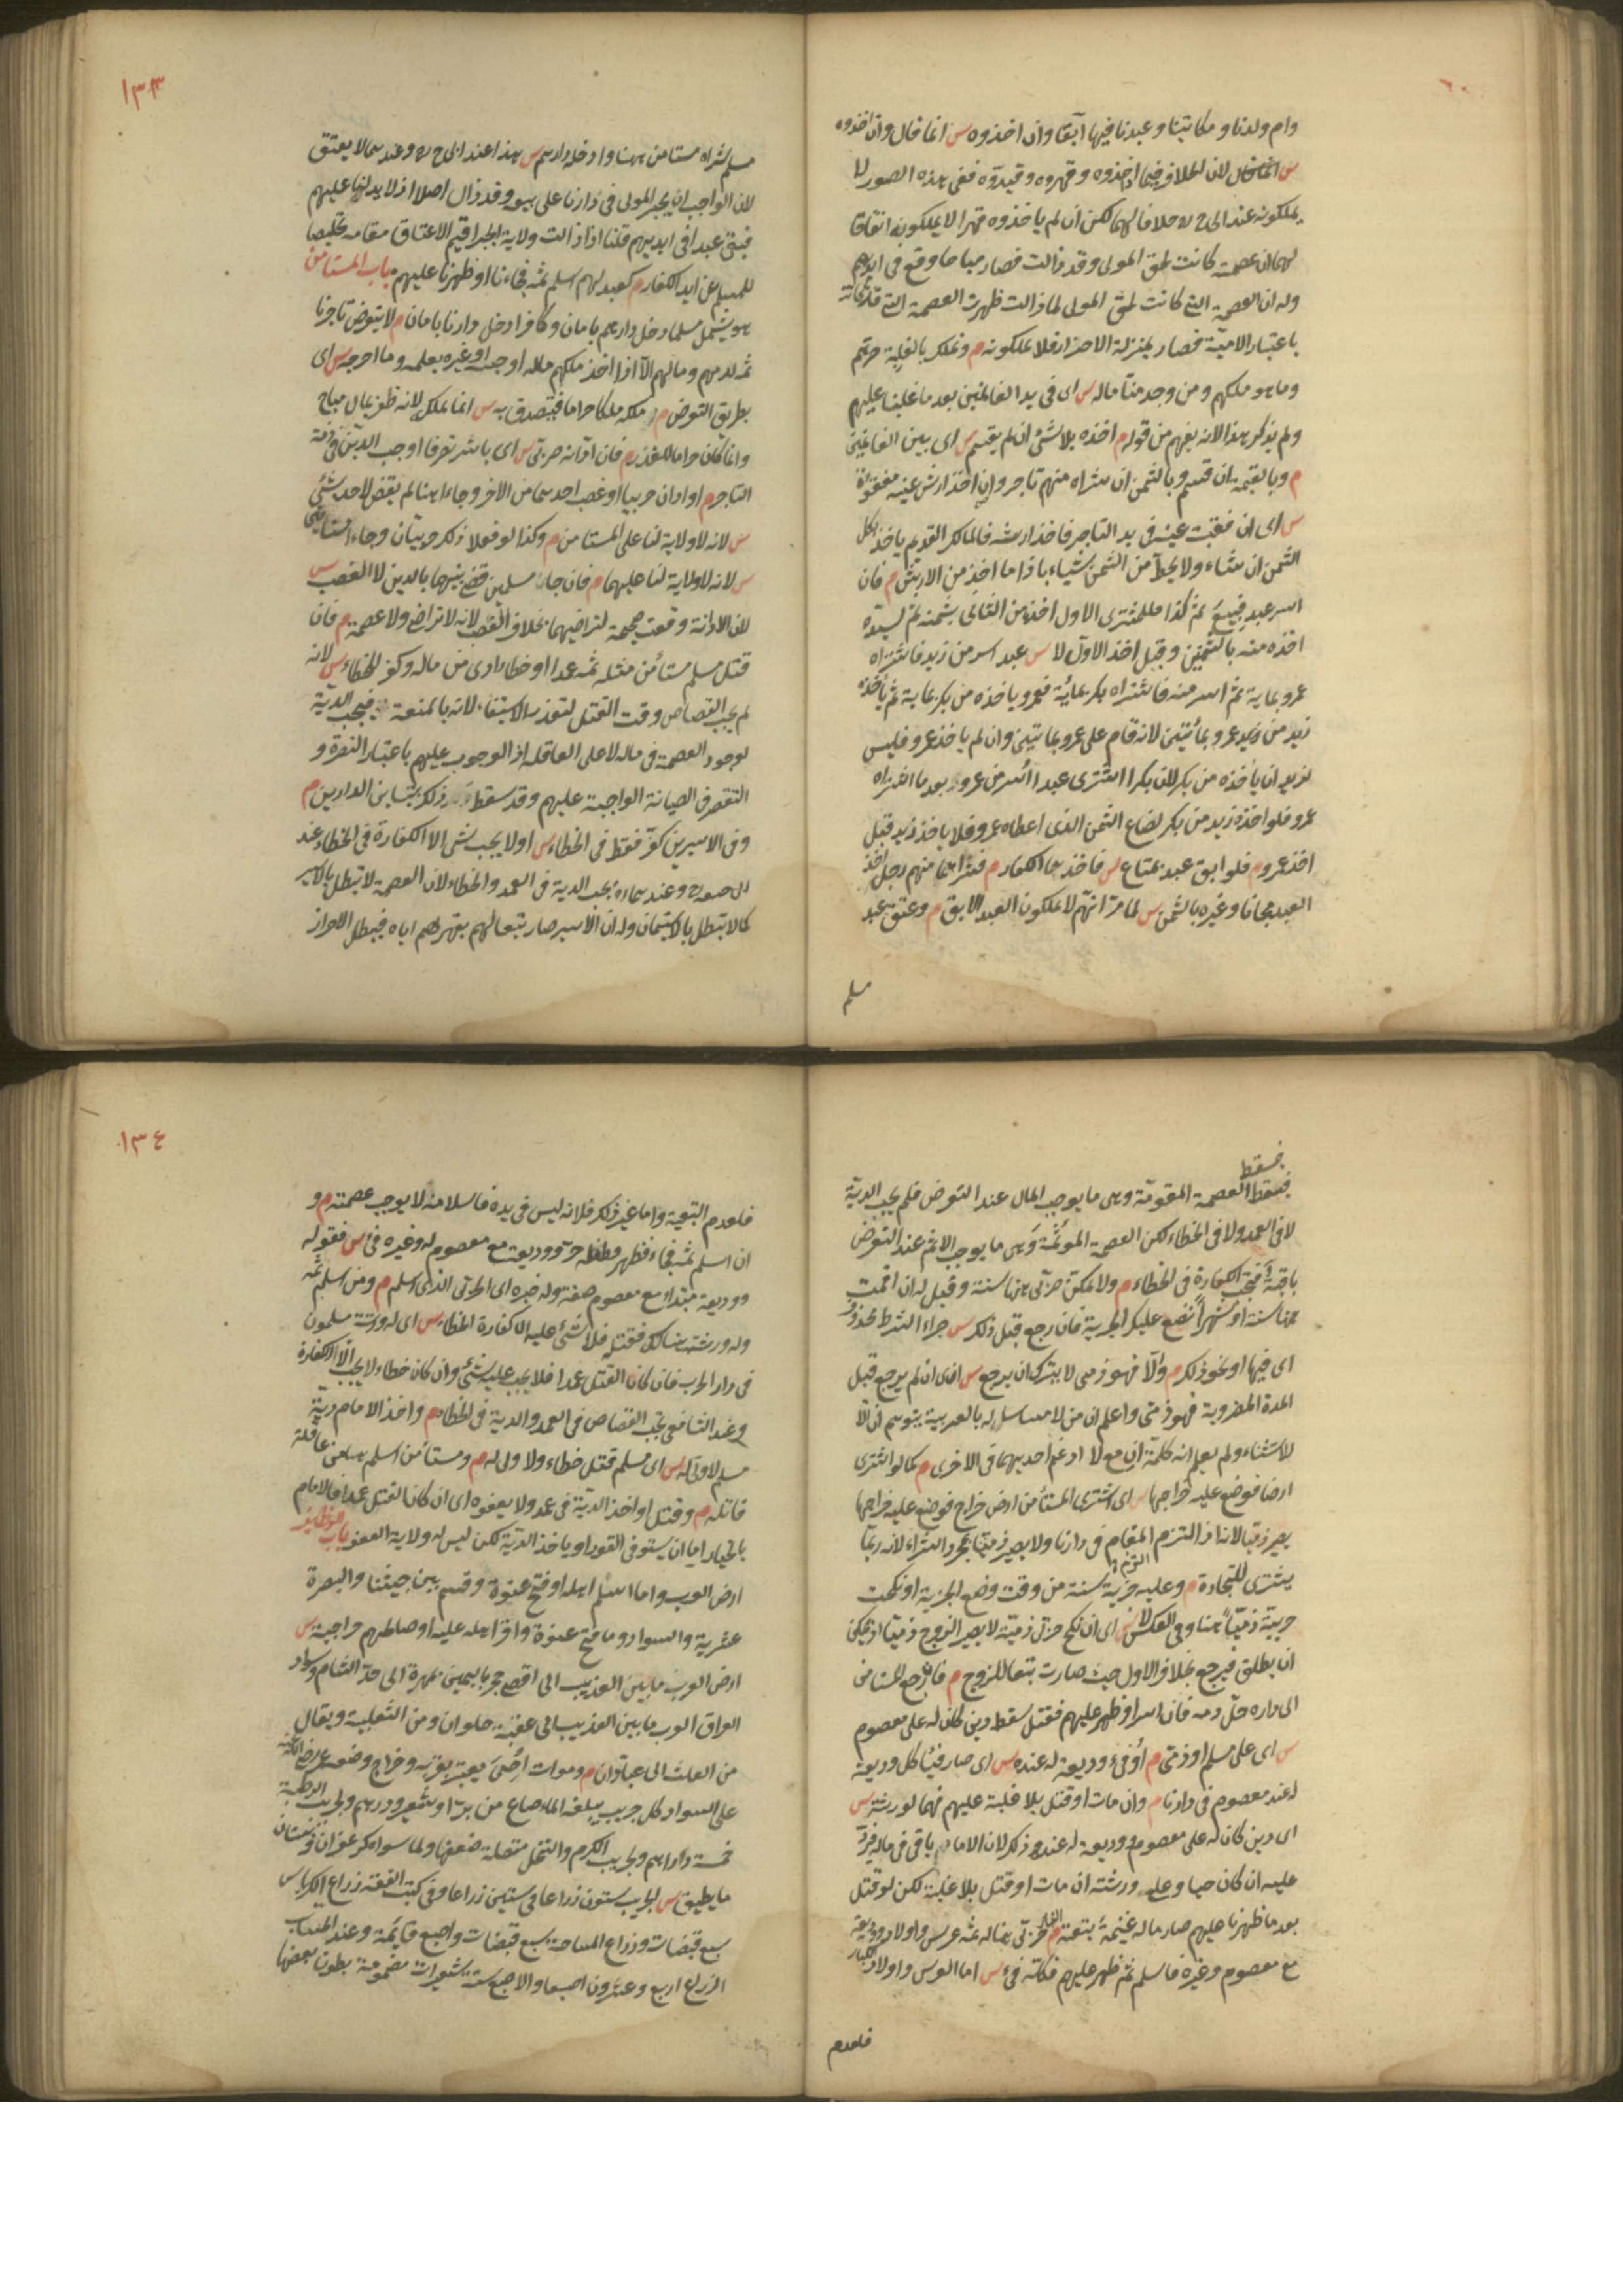 وام ولدنا ومكاتبنا وعبدنا فيها آبقا وان اخذوه س انما قال وان اخذوه
س انما قال لان الخلاف فيما اخذوه وقهروه وقيدوه ففي هذه الصور لا
يملكونه عند ابى ح ره خلافا لهما لكن ان لم ياخذوه قهرا لا يملكونه اتفاقا
لهما ان عصمته كانت لحق المولى وقد زالت فصار مباحا وقع فى ايديهم
وله ان العصمة التى كانت لحق المولى لما زالت ظهرت العصمة التى قد كانت
باعتبار الآدمية فصار بمنزلة الاحرار فلا يملكونه م ونملك بالغلبة حرهم
وما هو ملكهم ومن وجد منا ماله س اى فى يد الغانمين بعد ما غلبنا عليهم
ولم يذكر هذا لانه يفهم من قوله م اخذه بلا شئ ان لم يقسم س اى بين الغانمين
م وبالقيمة ان قسم وبالثمن ان شراه منهم تاجر وان اخذ ارش عينه مفقوءة
س اى ان فقئت عينه فى يد التاجر فاخذ ارشه فالمالك القديم ياخذ بكل
الثمن ان شاء ولا يحط من الثمن شيئا باذا ما اخذ من الارش م فان
اسر عبد فبيع ثم كذا فللمشترى الاول اخذه من الثانى بثمنه ثم لسيده
اخذه منه بالثمنين وقبل اخذ الاول لا س عبد اسر من زيد فاشتراه
عمرو بمائة ثم اسر منه فاشتراه بكر بمائة فعمرو ياخذه من بكر بمائة ثم ياخذه
زيد من عمرو بمائتين لانه قام على عمرو بمائتين وان لم ياخذ عمرو فليس
لزيد ان ياخذه من بكر لان بكرا اشترى عبدا اسر من عمرو بعد ما اشتراه
عمرو فلو اخذه زيد من بكر لضاع الثمن الذى اعطاه عمرو فلا ياخذ زيد قبل
اخذ عمرو م فلو ابق عبد بمتاع س فاخذهما الكفار م فشراهما منهم رجل اخذ
العبد مجانا وغيره بالثمن س لما مر انهم لا يملكون العبد الآبق م وعتق عبد
مسلم
١٣٣
مسلم شراه مستامن ههنا وادخله دارهم س هذا عند ابى ح ره وعندهما لا يعتق
لان الواجب ان يجبر المولى فى دارنا على بيعه وقد زال اصلا اذ لا يد لنا عليهم
فبقى عبدا فى ايديهم قلنا اذا زالت ولاية الجبر اقيم الاعتاق مقامه تخليصا
للمسلم عن ايد الكفار م كعبد لهم اسلم ثمه فجاءنا او ظهرنا عليهم باب المستامن
هو يشمل مسلما دخل دارهم بامان وكافرا دخل دارنا بامان م لا يتعرض تاجرنا
ثمه لدمهم ومالهم الا اذا اخذ ملكهم ماله او حبسه او غيره بعلمه وما اخرجه س اى
بطريق التعرض م ملكه ملكا حراما فيتصدق به س انما يملكه لانه ظفر بمال مباح
وانما كان حراما للغدر م فان ادانه حربى س اى باشر تصرفا اوجب الدين فى ذمة
التاجر م او ادان حربيا او غصب احدهما من الآخر وجاءا هنا لم يقض لاحد بشئ
س لانه لا ولاية لنا على المستامن م وكذا لو فعلا ذلك حربيان وجاءا مستامنين
س لانه لا ولاية لنا عليهما م فان جاءا مسلمين قضى بينهما بالدين لا الغصب س
لان الادانة وقعت صحيحة لتراضيهما بخلاف الغصب لانه لا تراضى ولا عصمة م فان
قتل مسلم مستأمن مثله ثمه عمدا او خطاء ادى من ماله وكفر للخطاء س لانه
لم يجب القصاص وقت القتل لتعذر الاستيفاء لانه بالمنعة فيجب الدية
لوجود العصمة فى ماله لا على العاقلة اذ الوجوب عليهم باعتبار النصرة و
التقصر فى الصيانة الواجبة عليهم وقد سقط ذلك بتباين الدارين م
وفى الاسيرين كفر فقط فى الخطاء س اولا يجب شئ الا الكفارة فى الخطاء عند
ابى حنيفة رح وعندهما ره تجب الدية فى العمد والخطاء لان العصمة لا تبطل بالاسر
كما لا تبطل بالاستيمان وله ان الاسير صار تبعا لهم بقهرهم اياه فيبطل الاحراز
فسقط
فسقط العصمة المقومة وهى ما يوجب المال عند التعرض فلم يجب الدية
لا فى العمد ولا فى الخطاء لكن العصمة المؤثمة وهى ما يوجب الاثم عند التعرض
باقية فتجب الكفارة فى الخطاء م ولا يمكن حربى هنا سنة وقيل له ان اقمت
هنا سنة او شهرا نضع عليك الجزية فان رجع قبل ذلك س جزاء الشرط محذوف
اى فبها او نحو ذلك م والا فهو ذمى لا يترك ان يرجع س اى ان لم يرجع قبل
المدة المضروبة فهو ذمى واعلم ان من لا مساس له بالعربية يتوهم ان الا
للاستثناء ولم يعلم انه كلمة ان مع لا ادغم احديهما فى الاخرى م كما لو اشترى
ارضا فوضع عليه خراجها س اى اشترى المستأمن ارض خراج فوضع عليه خراجها
يصير ذميا لانه اذ التزم المقام فى دارنا ولا يصير ذميا بمجرد الشراء لانه ربما
يشترى للتجارة م وعليه جزية سنة من وقت وضع الجزية او نكحت
حربية ذميا هنا وفى العكس لا س اى ان نكح حربى ذمية لا يصير الزوج ذميا اذ يمكن
ان يطلق فيرجع بخلاف الاول حيث صارت تبعا للزوج م فان رجع المستامن
الى داره حل دمه فان اسر او ظهر عليهم فقتل سقط دين كان له على معصوم
س اى على مسلم او ذمى م او فئ وديعة له عنده س اى صار فيئا كل وديعة
له عند معصوم فى دارنا م وان مات او قتل بلا غلبة عليهم فهما لورثته س
اى دين كان له على معصوم ووديعة له عنده وذلك لان الامان باق فى ماله فيرد
عليه ان كان حيا وعلى ورثته ان مات او قتل بلا غلبة لكن لو قتل
بعد ما ظهرنا عليهم صار ماله غنيمة بتبعته م حربى هنا له ثمه عرس واولاد ووديعة
مع معصوم وغيره فاسلم ثم ظهر عليهم فكله فئ س اما العرس واولاد الكبار
فلعدم
١٣٤
فلعدم التبعية واما غير ذلك فلانه ليس فى يده فاسلامه لا يوجب عصمته م و
ان اسلم ثمه فجاء فظهر فطفله حر ووديعته مع معصوم له وغيره فئ س فقوله
ووديعة مبتداء مع معصوم صفته وله خبره اى الحربى الذى اسلم م ومن اسلم ثمه
وله ورثته هنالك فقتله فلا شئ عليه الا كفارة الخطاء س اى له ورثة مسلمون
فى دار الحرب فان كان القتل عمدا فلا يجب عليه شئ وان كان خطاء لا يجب الا الكفارة
وعند الشافعى يجب القصاص فى العمد والدية فى الخطاء م واخذ الامام دية
مسلم لا ولى له س اى مسلم قتل خطاء ولا ولى له م ومستأمن اسلم هنا من عاقلة
قاتله م وقتل او اخذ الدية فى عمد ولا يعفوه اى ان كان القتل عمدا فالامام
بالخيار اما ان يستوفى القود او ياخذ الدية لكن ليس له ولاية العفو باب الوظائف
ارض العرب وما اسلم اهله او فتح عنوة وقسم بين جيشنا والبصرة
عشرية والسواد وما فتح عنوة واقر اهله عليه او صالحهم خراجية س
ارض العرب ما بين العذيب الى اقصى حجر باليمين بمهرة الى حد الشام وسواد
العراق العرب ما بين العذيب الى عقبة حلوان ومن الثعلبية ويقال
من العلث الى عبادان م وموات احيى يعتبر بقربه وخراج وضعه عمر رضى الله عنه
على السواد لكل جريب يبلغه الماء صاع من بر او شعير ودرهم ولجريب الرطبة
خمسة دراهم ولجريب الكرم والنخل متصلة ضعفها ولما سواه كزعفران وبستان
ما يطيق س الجريب ستون ذراعا فى ستين ذراعا وفى كتب الفقه ذراع الكرباس
سبع قبضات وذراع المساحة سبع قبضات واصبع قائمة وعند الحساب
الذراع اربع وعشرون اصبعا والاصبع ست شعيرات مضمومة بطون بعضها